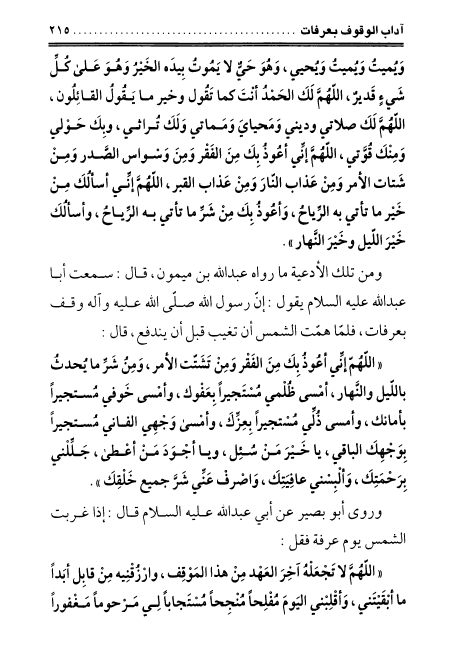 آداب الوقوف بعرفات ........................................ ٢١٥
وَيُميتُ وَيُميتُ وَيُحيي، وَهُوَ حَيٌّ لا يَمُوتُ بِيدَه الخَيْرُ وَهُوَ عَلىٰ كُلِّ
شَيءٍ قَديرٌ، اللَّهُمَّ لَكَ الحَمْدُ أنتَ كما تَقُول وخير ما يَقُولُ القائِلُون،
اللَّهُمَّ لَكَ صلاتي وديني وَمَحيايَ ومَماتي وَلَكَ تُراثي، وبِكَ حَوْلي
وَمِنْكَ قُوَّتي، اللَّهُمَّ إنِّي أعُوذُ بِكَ مِنَ الفَقْر وَمِنَ وَسْواس الصَّدر وَمِنْ
شَتات الأمر وَمِنْ عَذاب النّارَ وَمِنْ عَذاب القبر، اللَّهُمَّ إنِّي أسألُكَ مِنْ
خَيْر ما تأتي به الرِّياحُ، وَأعُوذُ بِكَ مِنْ شَرِّ ما تأتي به الرِّياحُ، وأسألُكَ
خَيْرَ اللّيل وخَيْرَ النَّهار».
ومن تلك الأدعية ما رواه عبدالله بن ميمون، قال: سمعت أبا
عبدالله عليه السلام يقول: إنّ رسول الله صلّى الله عليه وآله وقف
بعرفات، فلمّا همّت الشمس أن تغيب قبل أن يندفع، قال:
« اللَّهُمّ إنِّي أعُوذُ بِكَ مِنَ الفَقْر وَمِنْ تَشَتّت الأمر، وَمِنُ شَرِّ ما يُحدثُ
بالليل والنَّهار، أمْسى ظُلْمي مُسْتَجيراً بِعَفوك، وأمْسى خَوفي مُستجيراً
بأمانك، وأمسى ذُلِّي مُسْتجيراً بِعِزِّكَ، وأمْسىٰ وَجْهِي الفاني مُستجيراً
بِوَجْهِكَ الباقي، يا خَيْرَ مَنْ سُئِل، ويا أجْوَدَ مَنْ أعْطىٰ، جَلِّلْني
بِرَحْمَتِكَ، وَألْبِسْني عافِيَتِكَ، وَاصْرفْ عَنِّي شَرَّ جميع خَلْقِكَ».
وروى أبو بصير عن أبي عبدالله عليه السلام قال: إذا غربت
الشمس يوم عرفة فقل:
« اللَّهُمَّ لا تَجْعَلْهُ آخِرَ العَهْد مِنْ هذا المَوْقِف، وارْزُقْنيه مِنْ قابِل أبَداً
ما أبْقَيْتَني، وَأقْلِبْني اليَومَ مُفْلِحاً مُنْجحاً مُسْتَجاباً لِي مَرْحوماً مَغْفوراً